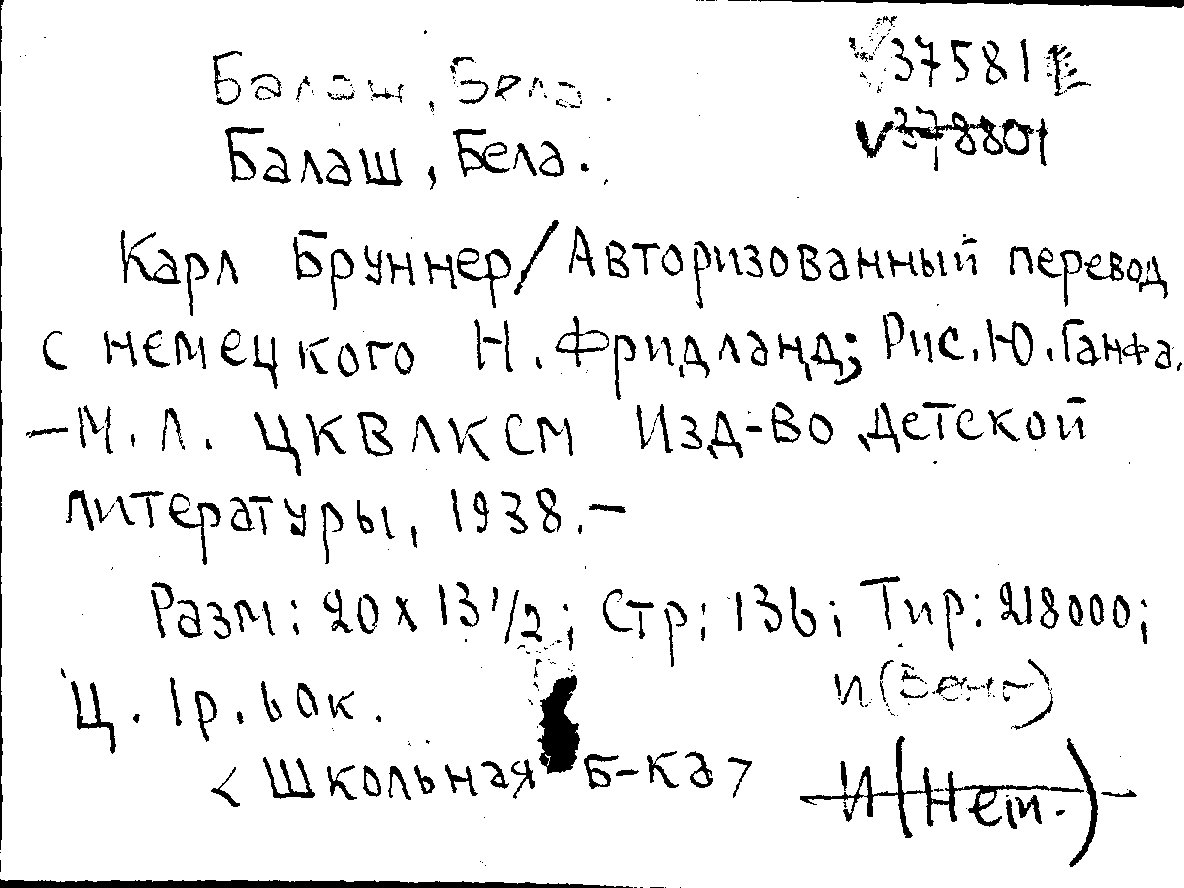 Балаш, Бела. 37581
Балаш, Бела. 378801
Карл Бруннер/Авторизованный перевод
с немецкого Н. Фридланд; Рис. Ю. Ганфа.
—М. Л. ЦКВЛКСМ Изд-во детской
литературы, 1938.—
Разм: 20 х 13 1/2; Стр: 136; Тир: 218000;
Ц. 1р. 60к. И (Венг)
<Школьная Б-ка> И (Нем.)